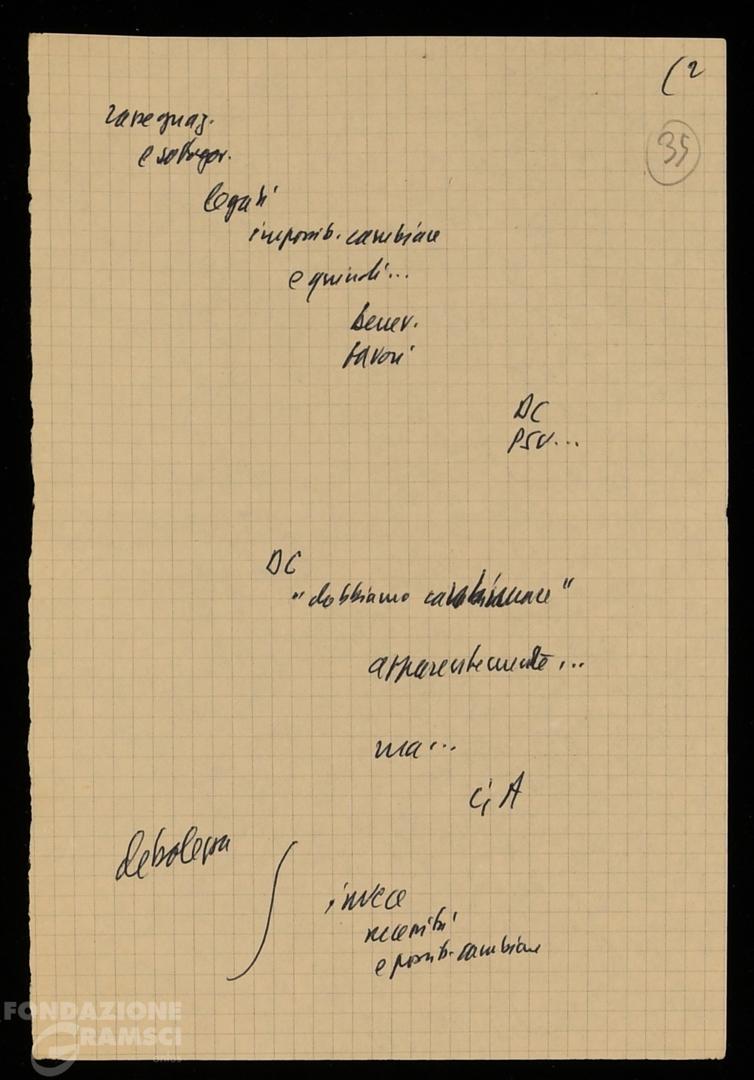 (2
35
rassegnaz.
e
legati
impossib. cambiare
e quindi...
benev.
favori
DC
PSU...
DC
"dobbiamo cambiare"
apparentemente...
ma...
debolezza
invece
necessità
e possib. cambiare
FONDAZIONE
GRAMSCI
onlus